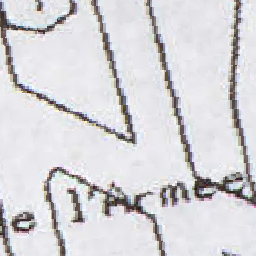 e l'Armee